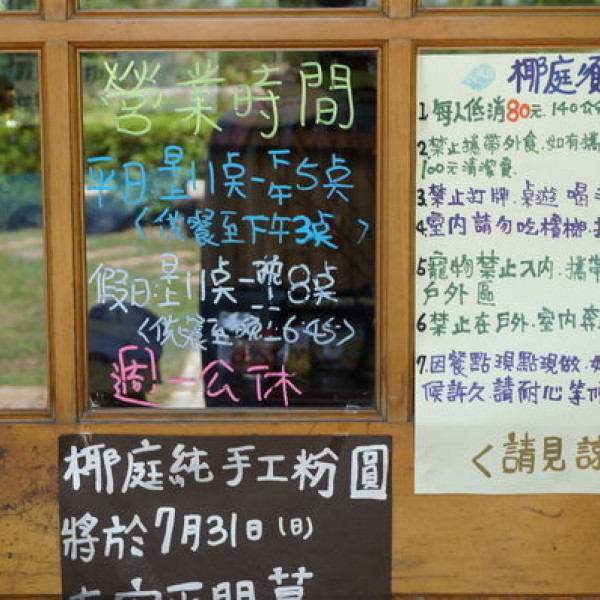 營業時間
平日:早上11点-下午5点
<供餐至下午3点>
假日:早上11点-晚上8点
<供餐至晚上6:45>
週一公休
椰庭純手工粉圓
將於7月31日(日)
椰庭須
1.每人低消80元.140公
2.禁止攜帶外食.如有攜
100元清潔費.
3.禁止打牌.桌遊.喝
4.室內請勿吃檳榔.
5.寵物禁止入內.攜帶
戶外區
6.禁止在戶外.室內奔
7.因餐點現點現做.
候許久.請耐心等
<請見諒